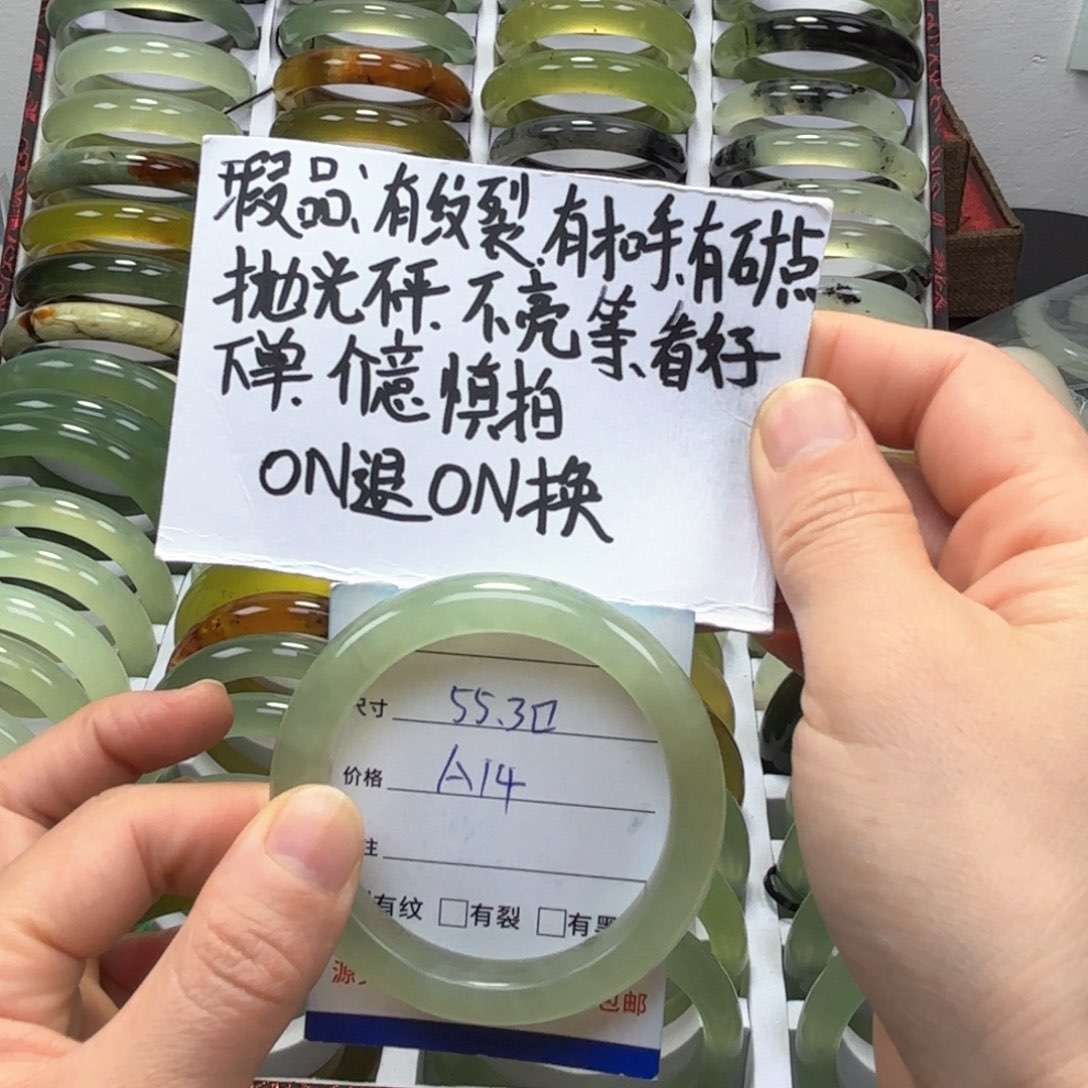 瑕品、有纹裂、有扣手、有矿点
抛光砰、不亮等、看好
下单、介意慎拍
ON退ON换
尺寸 55.30
价格 A14
注
有纹 □有裂 □有黑
源
包邮